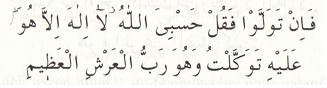 فَاِنْ تَوَلَّوْا فَقُلْ حَسْبِىَ اللّٰهُ ۘ لَٓا اِلٰهَ اِلَّا هُوَ ۜ
عَلَيْهِ تَوَكَّلْتُ وَهُوَ رَبُّ الْعَرْشِ الْعَظِيمِ